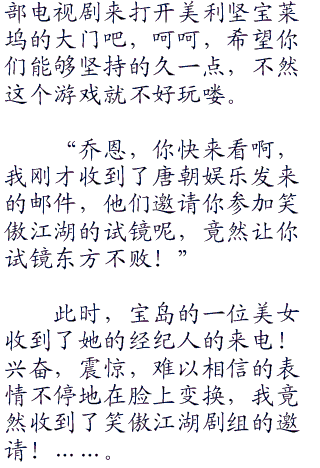 部电视剧来打开美利坚宝莱
坞的大门吧，呵呵，希望你
们能够坚持的久一点，不然
这个游戏就不好玩喽。
“乔恩，你快来看啊，
我刚才收到了唐朝娱乐发来
的邮件，他们邀请你参加笑
傲江湖的试镜呢，竟然让你
试镜东方不败！”
此时，宝岛的一位美女
收到了她的经纪人的来电！
兴奋，震惊，难以相信的表
情不停地在脸上变换，我竟
然收到了笑傲江湖剧组的邀
请！……。